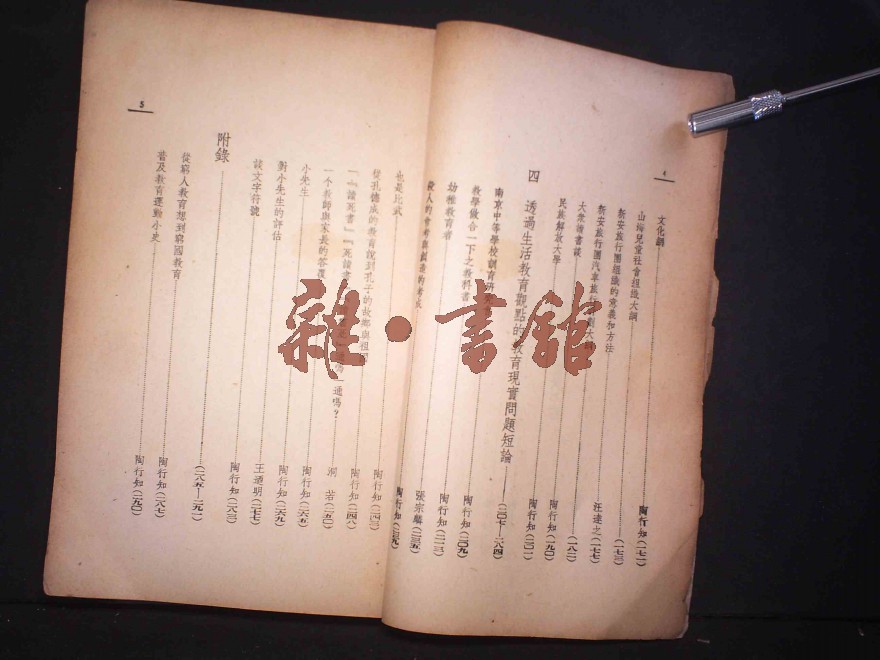 4
文化網 陶行知(一七一)
山海兒童社會組織大綱 (一七三)
新安旅行團組織的意義和方法 汪達之(一七七)
新安旅行團汽車旅行計劃大 (一八二)
大衆讀書談 陶行知(一九〇)
民族解放大學 陶行知(二〇一)
四 透過生活教育觀點的教育現實問題短論 (二〇七—二八四)
南京中等學校訓育研 陶行知(二〇九)
教學做合一下之教科書 陶行知(二一三)
幼稚教育者 張宗麟(二三五)
殺人的會考與創造的考成 陶行知(二三九)
也是比武 陶行知(二四三)
從孔德成的教育說到孔子的故鄉與祖國 陶行知(二四八)
「「讀死書」「死讀書 通嗎? 洞若(二五〇)
一个教師與家長的答覆 陶行知(二六五)
小先生 陶行知(二六九)
對小先生的評估 王洞明(二七七)
談文字符號 陶行知(二八三)
附錄 (二八五—二九一)
從窮人教育想到窮國教育 陶行知(二八七)
普及教育運動小史 陶行知(二九〇)
5
雜•書館